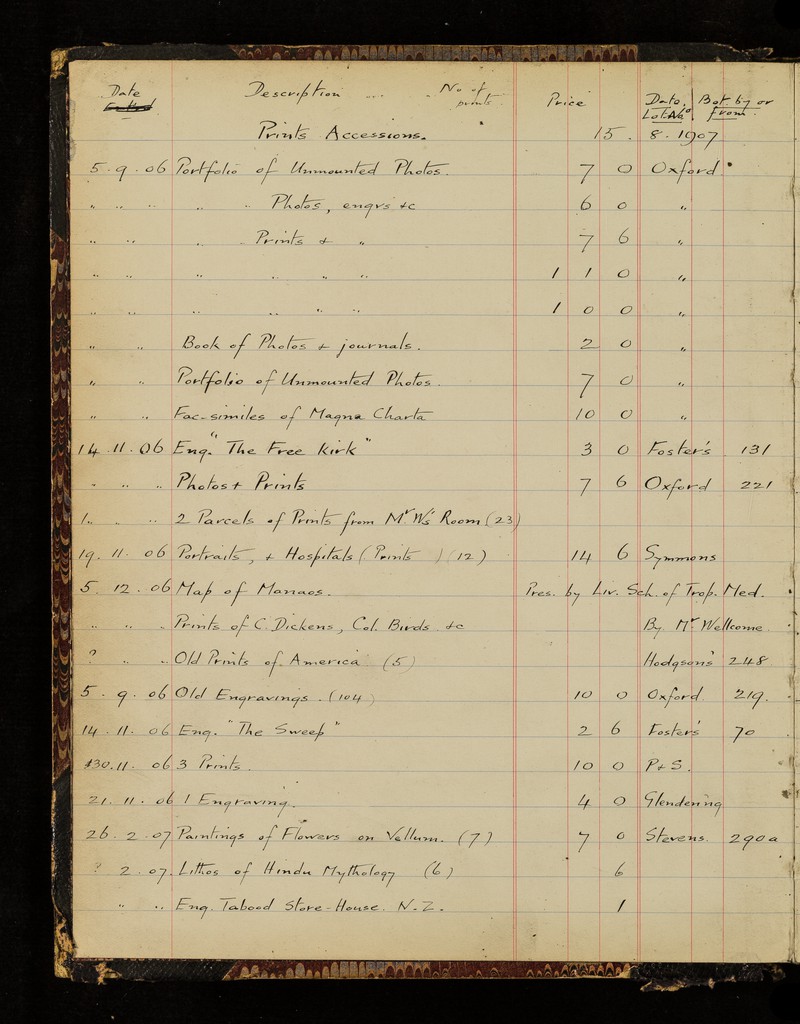 Date Description ... No of prints Price Date. Lot.No Bot by or from
Prints Accessions. 15. 8. 1907
5. 9. 06 Portfolio of Unmounted Photos. 7 0 Oxford
" " " " " Photos, engrs &c 6 0 "
" " " " Prints & " 7 6 "
" " " " " 1 1 0 "
" " " " " 1 0 0 "
" " Book of Photos & journals. 2 0 "
" " Portfolio of Unmounted Photos. 7 0 "
" " Fac-similes of Magna Charta 10 0 "
14. 11. 06 Eng. "The Free Kirk" 3 0 Foster's 131
" " " Photos & Prints 7 6 Oxford 221
" " 2 Parcels of Prints from Mr W's Room (23)
19. 11. 06 Portraits, & Hospitals (Prints ) (12) 14 6 Symmons
5. 12. 06 Map of Manaos. Pres. by Liv. Sch. of Trop. Med.
" " " Prints of C. Dickens, Col. Birds &c By Mr Wellcome
? " " Old Prints of America (5) Hodgson's 248
5. 9. 06 Old Engravings. (104) 10 0 Oxford. 219.
14. 11. 06 Eng. "The Sweep" 2 6 Foster's 70
30. 11. 06 3 Prints 10 0 P & S.
21. 11. 06 1 Engraving. 4 0 Glendening
26. 2. 07 Paintings of Flowers on Vellum. (7) 7 0 Stevens. 290a
? 2. 07. Lithos of Hindu Mythology (6) 6
" " Eng. Tabood Store-House. N.Z. 1